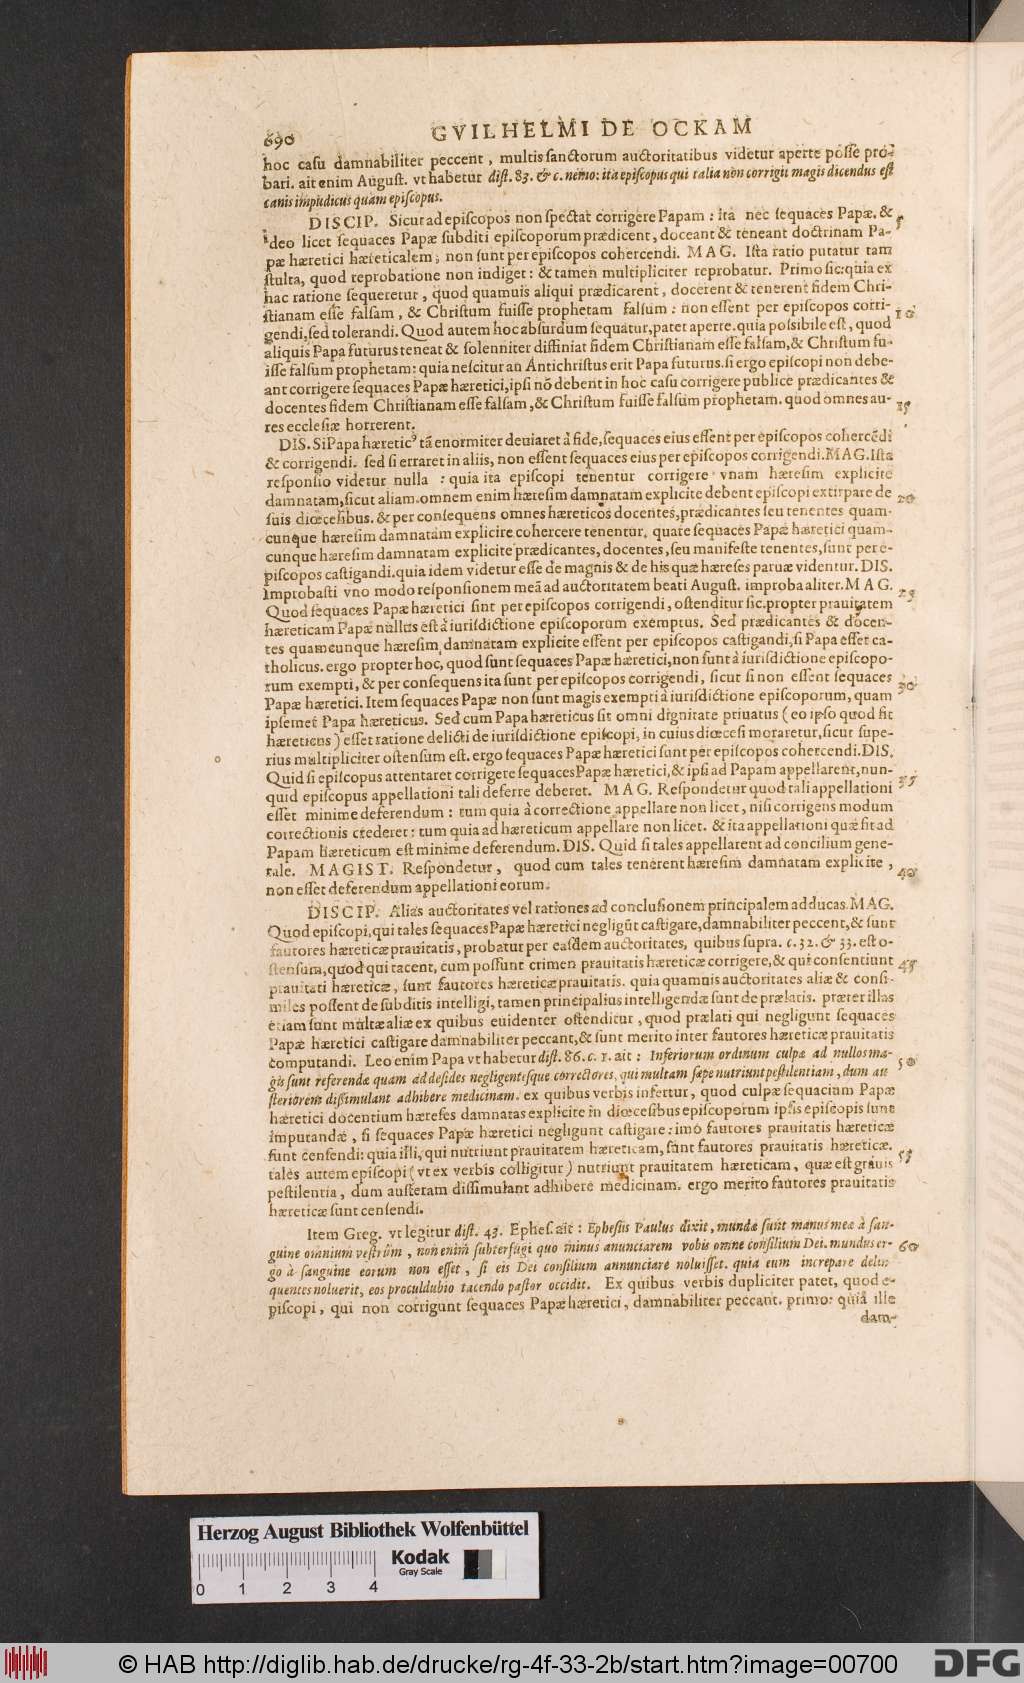 690
GVILHELMI DE OCKAM
hoc casu damnabiliter peccent, multis sanctorum auctoritatibus videtur aperte posse pro-
bari. ait enim August. vt habetur dist. 83. & c. nemo: ita episcopus qui talia non corrigit magis dicendus est
canis impudicus quam episcopus.
DISCIP. Sicut ad episcopos non spectat corrigere Papam: ita nec sequaces Papæ. & 5
ideo licet sequaces Papæ subditi episcoporum prædicent, doceant & teneant doctrinam Pa-
pæ hæretici hæreticalem; non sunt per episcopos cohercendi. MAG. Ista ratio putatur tam
stulta, quod reprobatione non indiget: & tamen multipliciter reprobatur. Primo sic: quia ex
hac ratione sequeretur, quod quamuis aliqui prædicarent, docerent & tenerent fidem Chri-
stianam esse falsam, & Christum fuisse prophetam falsum: non essent per episcopos corri- 10
gendi, sed tolerandi. Quod autem hoc absurdum sequatur, patet aperte. quia possibile est, quod
aliquis Papa futurus teneat & solenniter diffiniat fidem Christianam esse falsam, & Christum fu-
isse falsum prophetam: quia nescitur an Antichristus erit Papa futurus. si ergo episcopi non debe-
ant corrigere sequaces Papæ hæretici, ipsi nõ debent in hoc casu corrigere publice prædicantes &
docentes fidem Christianam esse falsam, & Christum fuisse falsum prophetam. quod omnes au- 15
res ecclesiæ horrerent.
DIS. Si Papa hæreticꝰ tã enormiter deuiaret à fide, sequaces eius essent per episcopos cohercẽdi
& corrigendi. sed si erraret in aliis, non essent sequaces eius per episcopos corrigendi. MAG. Ista
responsio videtur nulla: quia ita episcopi tenentur corrigere vnam hæresim explicite
damnatam, sicut aliam. omnem enim hæresim damnatam explicite debent episcopi extirpare de 20
suis diœcesibus. & per consequens omnes hæreticos docentes, prædicantes seu tenentes quam-
cunque hæresim damnatam explicite cohercere tenentur. quare sequaces Papæ hæretici quam-
cunque hæresim damnatam explicite prædicantes, docentes, seu manifeste tenentes, sunt per e-
piscopos castigandi. quia idem videtur esse de magnis & de his quæ hæreses paruæ videntur. DIS.
Improbasti vno modo responsionem meã ad auctoritatem beati August. improba aliter. MAG. 25
Quod sequaces Papæ hæretici sint per episcopos corrigendi, ostenditur sic. propter prauitatem
hæreticam Papæ nullus est à iurisdictione episcoporum exemptus. Sed prædicantes & docen-
tes quamcunque hæresim damnatam explicite essent per episcopos castigandi, si Papa esset ca-
tholicus. ergo propter hoc, quod sunt sequaces Papæ hæretici, non sunt à iurisdictione episcopo-
rum exempti, & per consequens ita sunt per episcopos corrigendi, sicut si non essent sequaces 30
Papæ hæretici. Item sequaces Papæ non sunt magis exempti à iurisdictione episcoporum, quam
ipsemet Papa hæreticus. Sed cum Papa hæreticus sit omni dignitate priuatus (eo ipso quod fit
hæreticus) esset ratione delicti de iurisdictione episcopi, in cuius diœcesi moraretur, sicut supe-
rius multipliciter ostensum est. ergo sequaces Papæ hæretici sunt per episcopos cohercendi. DIS.
Quid si episcopus attentaret corrigere sequaces Papæ hæretici, & ipsi ad Papam appellarent, nun- 35
quid episcopus appellationi tali deferre deberet. MAG. Respondetur quod tali appellationi
esset minime deferendum: tum quia à correctione appellare non licet, nisi corrigens modum
correctionis excederet: tum quia ad hæreticum appellare non licet. & ita appellationi quæ fit ad
Papam hæreticum est minime deferendum. DIS. Quid si tales appellarent ad concilium gene-
rale. MAGIST. Respondetur, quod cum tales tenerent hæresim damnatam explicite, 40
non esset deferendum appellationi eorum.
DISCIP. Alias auctoritates vel rationes ad conclusionem principalem adducas. MAG.
Quod episcopi, qui tales sequaces Papæ hæretici negligũt castigare, damnabiliter peccent, & sunt
fautores hæreticæ prauitatis, probatur per easdem auctoritates, quibus supra. c. 32. & 33. est o-
stensum, quod qui tacent, cum possunt crimen prauitatis hæreticæ corrigere, & qui consentiunt 45
prauitati hæreticæ, sunt fautores hæreticæ prauitatis. quia quamuis auctoritates aliæ & consi-
miles possent de subditis intelligi, tamen principalius intelligendæ sunt de prælatis. præter illas
etiam sunt multæ aliæ ex quibus euidenter ostenditur, quod prælati qui negligunt sequaces
Papæ hæretici castigare damnabiliter peccant, & sunt merito inter fautores hæreticæ prauitatis
computandi. Leo enim Papa vt habetur dist. 86. c. 1. ait: Inferiorum ordinum culpæ ad nullos ma- 50
gis sunt referendæ quam ad desides negligentesque correctores, qui multam sæpe nutriunt pestilentiam, dum au
steriorem dissimulant adhibere medicinam. ex quibus verbis infertur, quod culpæ sequacium Papæ
hæretici docentium hæreses damnatas explicite in diœcesibus episcoporum ipsis episcopis sunt
imputandæ, si sequaces Papæ hæretici negligunt castigare: imo fautores prauitatis hæreticæ
sunt censendi: quia illi, qui nutriunt prauitatem hæreticam, sunt fautores prauitatis hæreticæ. 55
tales autem episcopi (vt ex verbis colligitur) nutriunt prauitatem hæreticam, quæ est grauis
pestilentia, dum austeram dissimulant adhibere medicinam. ergo merito fautores prauitatis
hæreticæ sunt censendi.
Item Greg. vt legitur dist. 43. Ephes. ait: Ephesiis Paulus dixit, mundæ sunt manus meæ à san-
guine omnium vestrûm, non enim subterfugi quo minus anunciarem vobis omne consilium Dei. mundus er- 60
go à sanguine eorum non esset, si eis Dei consilium annunciare noluisset. quia cum increpare delin
quentes noluerit, eos proculdubio tacendo pastor occidit. Ex quibus verbis dupliciter patet, quod e-
piscopi, qui non corrigunt sequaces Papæ hæretici, damnabiliter peccant. primo: quia ille
dam-
Herzog August Bibliothek Wolfenbüttel
Kodak
Gray Scale
0 1 2 3 4
© HAB http://diglib.hab.de/drucke/rg-4f-33-2b/start.htm?image=00700
DFG